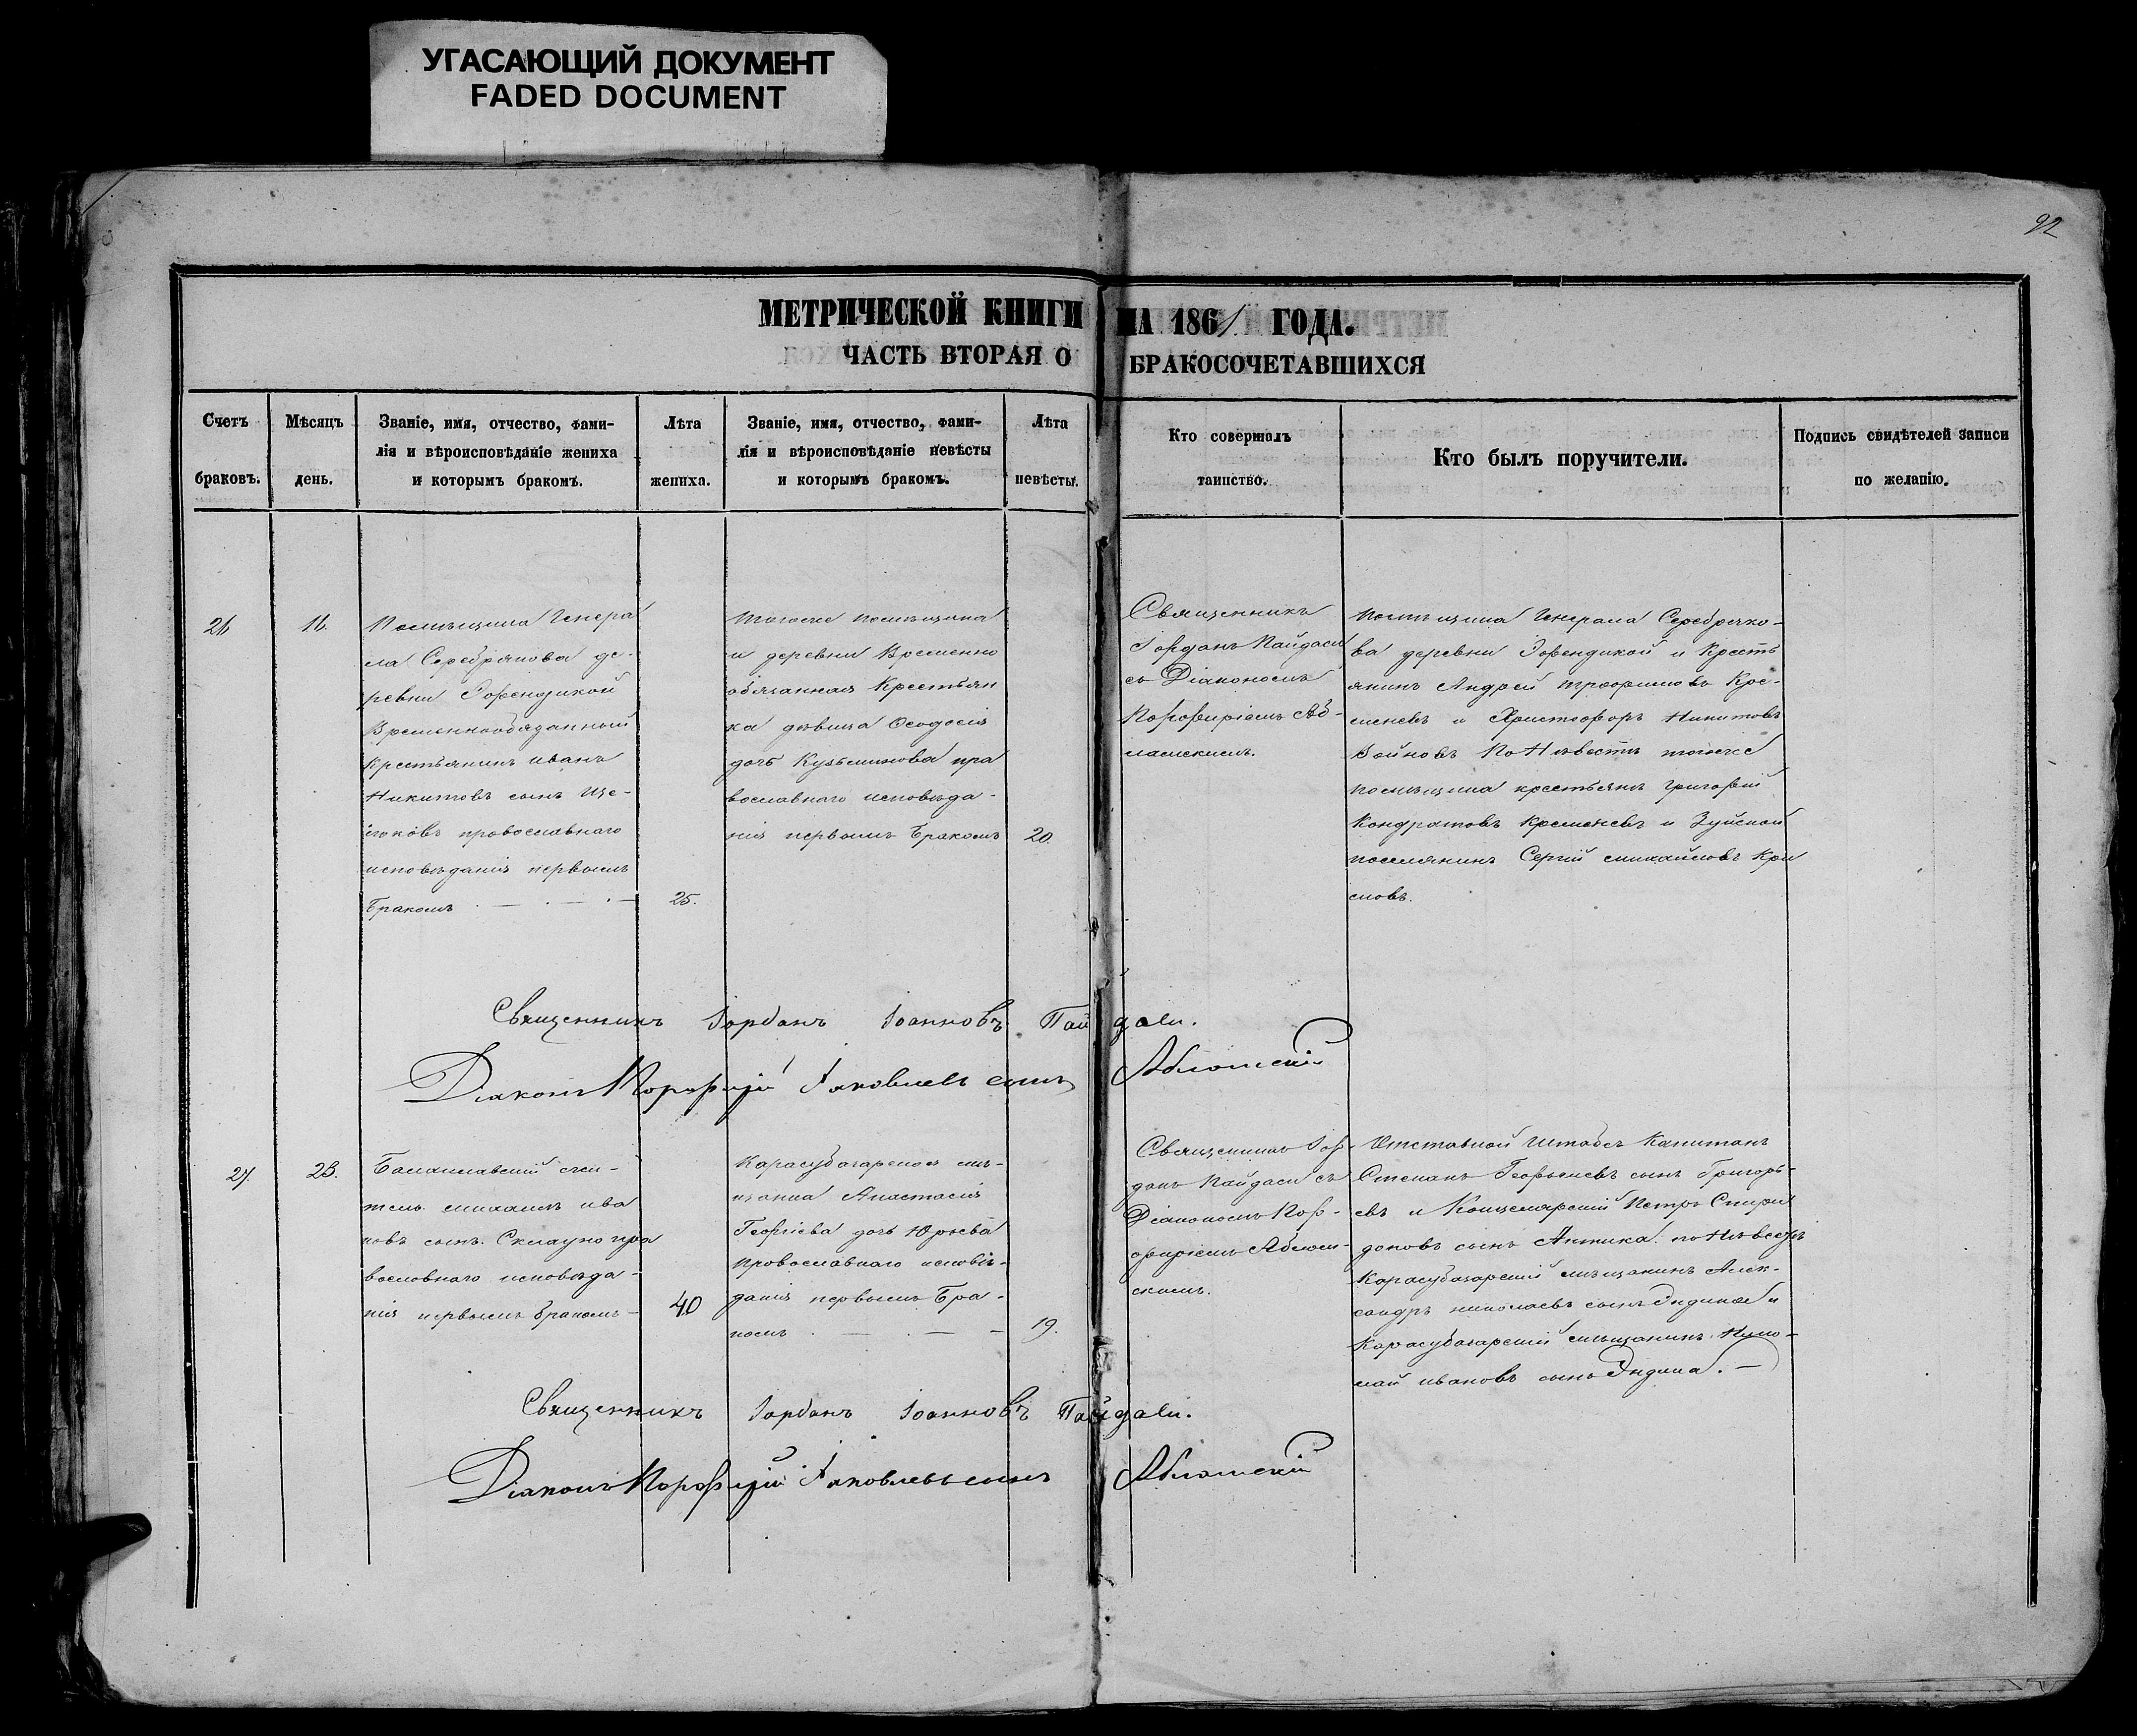 УГАСАЮЩИЙ ДОКУМЕНТ
FADED DOCUMENT
92
МЕТРИЧЕСКОЙ КНИГИ НА 1861 ГОДА.
ЧАСТЬ ВТОРАЯ О БРАКОСОЧЕТАВШИХСЯ
Счетъ
браковъ.
Мѣсяцъ
день.
Званіе, имя, отчество, фами-
лія и вѣроисповѣданіе жениха
и которымъ бракомъ.
Лѣта
жениха.
Званіе, имя, отчество, фами-
лія и вѣроисповѣданіе невѣсты
и которымъ бракомъ.
Лѣта
невѣсты.
Кто совершалъ
таинство.
Кто былъ поручители.
Подпись свидѣтелей записи
по желанію.
26
16.
Помѣщика Генера
ла Серебрякова де-
ревни
Временнообязанный
крестьянинъ Иванъ
Никитовъ сынъ
православнаго
исповѣданія первымъ
бракомъ
25.
тогоже помѣщика
и деревни Временно
обязанная Крестьян
ка дѣвица Ѳеодосія
дочь Кузьминова пра
вославнаго исповѣда-
нія первымъ Бракомъ
20.
Священникъ
Іорданъ Пайдаси
съ Діакономъ
Порфиріемъ Аб-
ламскимъ.
помѣщика Генерала Серебряко-
ва деревни и Кресть
янинъ Андрей Трофимовъ Кре-
меневъ и Христофоръ Никитовъ
Войновъ По Невѣстѣ тогоже
помѣщика крестьянъ Григорій
Кондратовъ Кременевъ и Зуйской
поселянинъ Сергій Михайловъ Кри
мовъ.
Священникъ Іорданъ Іоанновъ Пайдаси.
Діаконъ Порфирій Іаковлевъ сынъ Абламскій
27.
23.
Балаклавскій жи-
тель Михаилъ Ива
новъ сынъ. Склауно пра
вославнаго исповѣда-
нія первымъ бракомъ
40
Карасубазарская мѣ-
щанка Анастасія
Георгіева дочь Юрьева
православнаго исповѣ-
данія первымъ Бра-
комъ
19.
Священникъ Іор-
данъ Пайдаси съ
Діакономъ Пор-
фиріемъ Аблам-
скимъ.
Отставной Штабсъ Капитанъ
Степанъ Георгіевъ сынъ Григорь-
евъ и Петръ Спири
доновъ сынъ Антика. по Невѣстѣ
Карасубазарскій мѣщанинъ Алек-
сандръ Николаевъ сынъ и
Карасубазарскій мѣщанинъ. Нико-
лай Ивановъ сынъ
Священникъ Іорданъ Іоанновъ Пайдаси.
Діаконъ Порфирій Іаковлевъ сынъ Абламскій